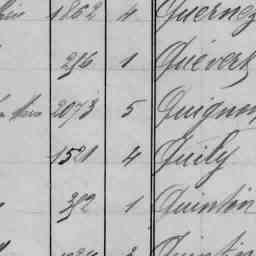 1862 4 Querney
216 1 Quévert
2073 5 Quignon
1521 4 Quily
392 1 Quintin
Quintin